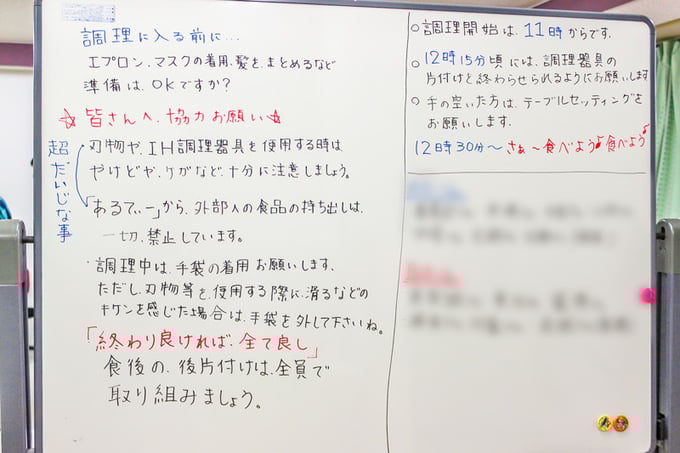 調理に入る前に…
エプロン、マスクの着用、髪をまとめるなど
準備は、OKですか?
☆皆さんへ、協力お願い☆
超だいじな事
・刃物や、IH調理器具を使用する時は
やけどや、ケガなど、十分に注意しましょう。
・「あるてぃー」から、外部への食品の持ち出しは、
一切、禁止しています。
・調理中は、手袋の着用お願いします、
ただし、刃物等を、使用する際に、滑るなどの
キケンを感じた場合は、手袋を外して下さいね。
「終わり良ければ、全て良し」
食後の、後片付けは、全員で
取り組みましょう。
○調理開始は、11時からです。
○12時15分頃には、調理器具の
片付けを終わらせられるようにお願いします
○手の空いた方は、テーブルセッティングを
お願いします。
12時30分〜さぁ〜食べよう♪食べよう♪